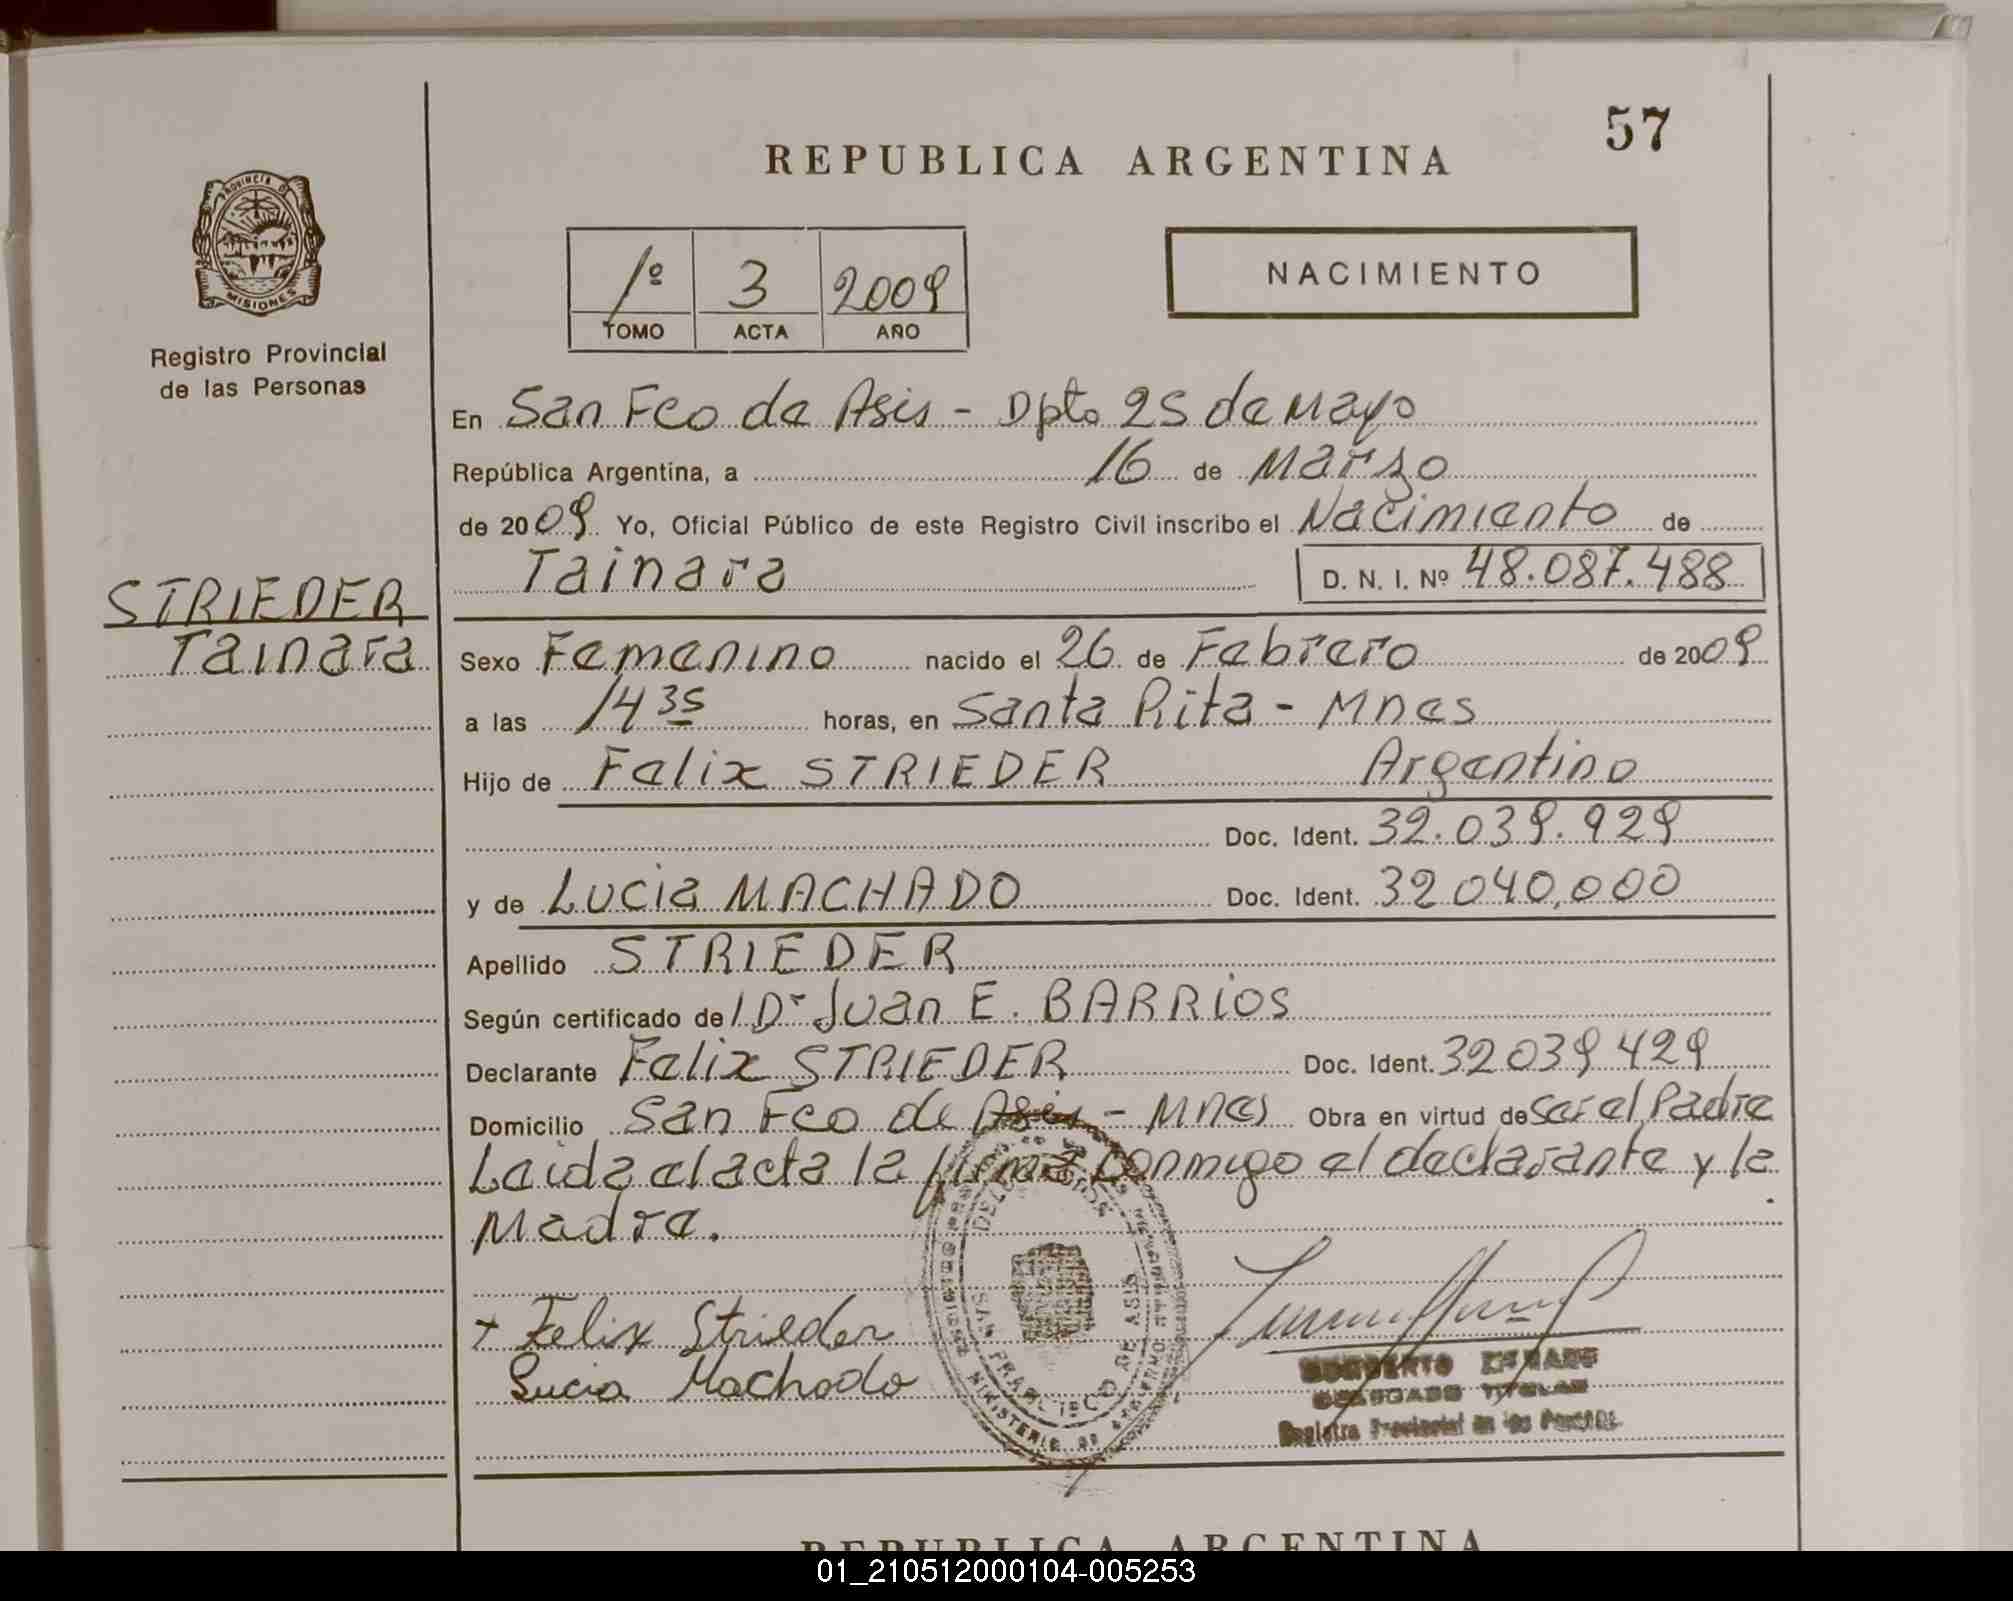 57
REPUBLICA ARGENTINA
PROVINCIA DE
MISIONES
Registro Provincial
de las Personas
1º 3 2009
TOMO ACTA AÑO
NACIMIENTO
En San Fco de Asis - Dpto 25 de Mayo
República Argentina, a 16 de Marzo
de 2009 Yo, Oficial Público de este Registro Civil inscribo el Nacimiento de
Tainara D. N. I. Nº 48.087.488
STRIEDER
Tainara
Sexo Femenino nacido el 26 de Febrero de 2009
a las 14 35 horas, en Santa Rita - Mnes
Hijo de Felix STRIEDER Argentino
Doc. Ident. 32.039.929
y de Lucia MACHADO Doc. Ident. 32040,000
Apellido STRIEDER
Según certificado de l Dr Juan E. BARRIOS
Declarante Felix STRIEDER Doc. Ident. 32039429
Domicilio San Fco de Asis - Mnes Obra en virtud de ser el Padre
Leida el acta la firma conmigo el declarante y la
Madre.
+ Felix Strieder
Lucia Machado
SAN FRANCISCO DE ASIS
Registro Provincial de las Personas
REPUBLICA ARGENTINA
01_210512000104-005253